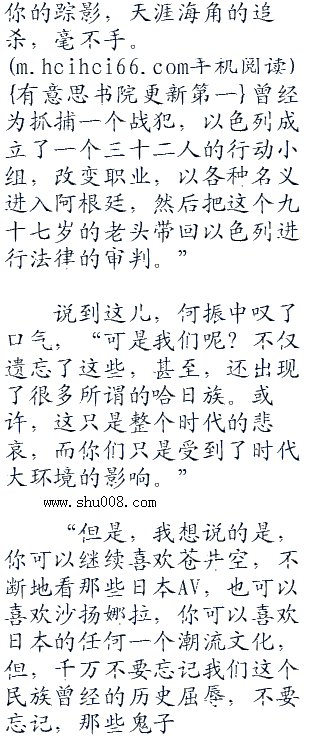 你的踪影，天涯海角的追
杀，毫不手。
(m.hcihci66.com手机阅读)
{有意思书院更新第一}曾经
为抓捕一个战犯，以色列成
立了一个三十二人的行动小
组，改变职业，以各种名义
进入阿根廷，然后把这个九
十七岁的老头带回以色列进
行法律的审判。”
说到这儿，何振中叹了
口气，“可是我们呢？不仅
遗忘了这些，甚至，还出现
了很多所谓的哈日族。或
许，这只是整个时代的悲
哀，而你们只是受到了时代
大环境的影响。”
www.shu008.com
“但是，我想说的是，
你可以继续喜欢苍井空，不
断地看那些日本AV，也可以
喜欢沙扬娜拉，你可以喜欢
日本的任何一个潮流文化，
但，千万不要忘记我们这个
民族曾经的历史屈辱，不要
忘记，那些鬼子